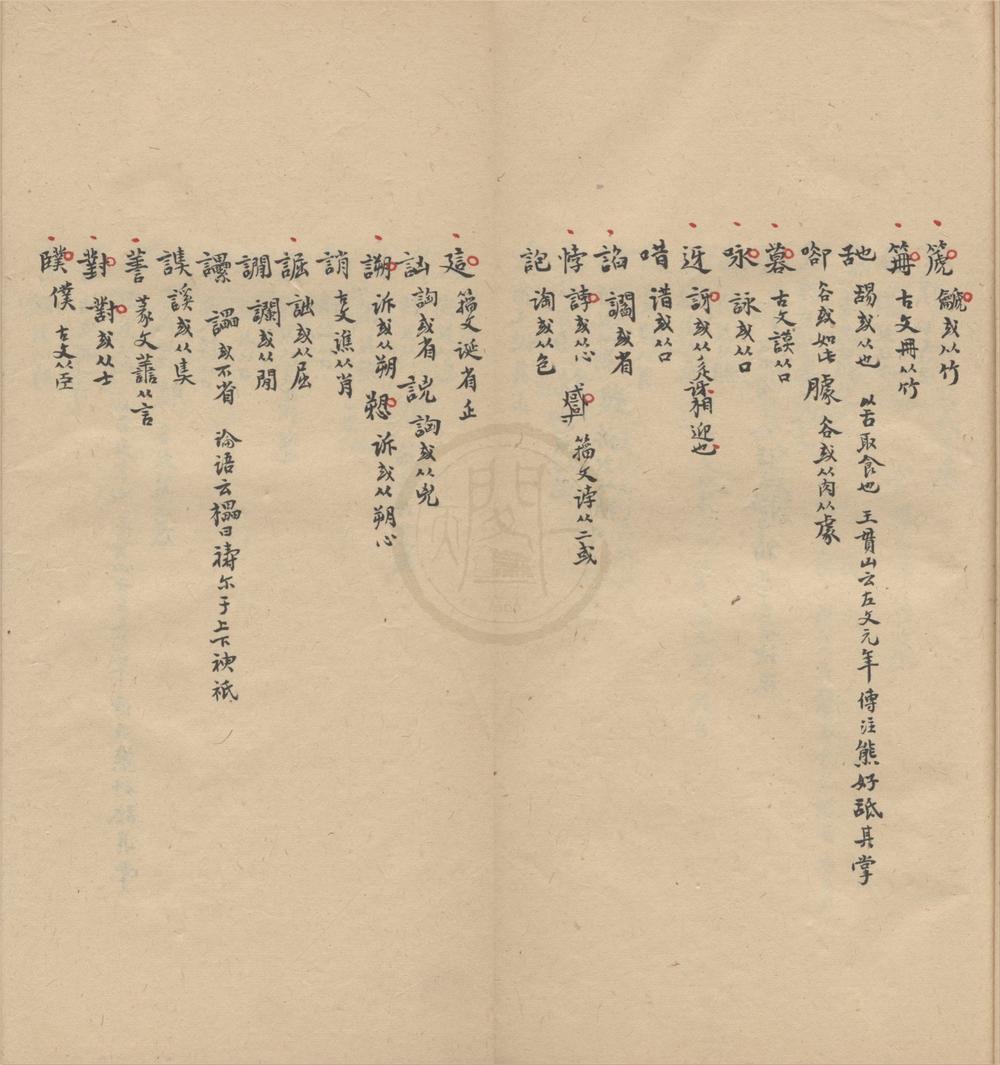 箎 䶵或从竹
笧 古文冊从竹
舓或从也 以舌取食也 王贯山云左文元年傳注熊好䑛其掌
㕁 谷或如此 臄 谷或从肉从豦
暮 古文謨从口
咏 詠或从口
迓 訝或从辵訝相迎也
唶 諎或从口
諂 讇或省
悖 誖或从心 籀文誖从二或
詾或从包
籀文誕省正
訩 詾或省 詾或从兇
謿 訴或从朔 愬 訴或从朔心
誚 古文譙从肖
誳 詘或从屈
讕或从閒
讄或不省 论语云讄曰禱尔于上下神祇
謑或从奊
善 篆文譱从言
對 對或从士
䑑 僕 古文从臣